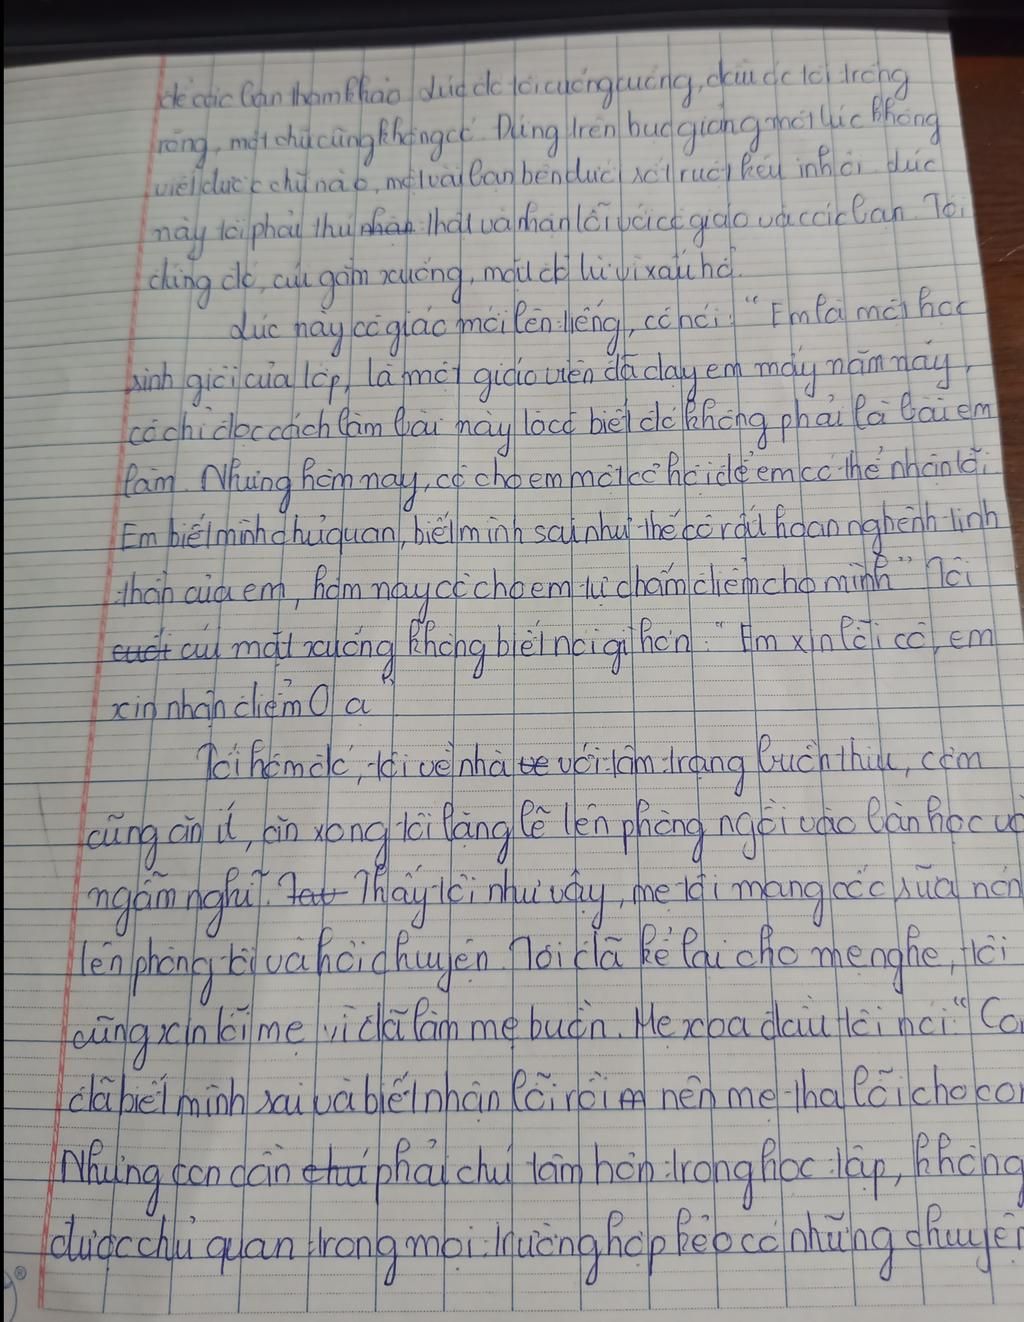 để các bạn tham khảo. Lúc đó tôi cuống cuồng, đầu óc tôi trống
rỗng, một chữ cũng không có. Đứng trên bục giảng một lúc không
viết được chữ nào, một vài bạn bên dưới sốt ruột kêu inh ỏi. Lúc
này tôi phải thú nhận thật và nhận lỗi với cô giáo và các bạn. Tôi
đứng đó, cúi gằm xuống, mặt đỏ lừ vì xấu hổ.
Lúc này cô giáo mới lên tiếng, cô nói: "Em là một học
sinh giỏi của lớp, là một giáo viên đã dạy em mấy năm nay,
cô chỉ đọc cách làm bài này là cô biết đó không phải là bài em
làm. Nhưng hôm nay, cô cho em một cơ hội để em có thể nhận lỗi.
Em biết mình chủ quan, biết mình sai như thế cô rất hoan nghênh tinh
thần của em, hôm nay cô cho em tự chấm điểm cho mình" Tôi
cúi mặt xuống không biết nói gì hơn: "Em xin lỗi cô, em
xin nhận điểm 0 ạ"
Tối hôm đó, tôi về nhà với tâm trạng buồn thiu, cơm
cũng ăn ít, ăn xong tôi lẳng lẽ lên phòng ngồi vào bàn học và
ngẫm nghĩ. Thấy tôi như vậy, mẹ tôi mang cốc sữa nón
lên phòng tôi và hỏi chuyện. Tôi đã kể lại cho mẹ nghe, tôi
cũng xin lỗi mẹ vì đã làm mẹ buồn. Mẹ xoa đầu tôi nói: "Co
đã biết mình sai và biết nhận lỗi rồi nên mẹ tha lỗi cho con
Nhưng con cần phải chú tâm hơn trong học tập, không
được chủ quan trong mọi trường hợp kẻo có những chuyện